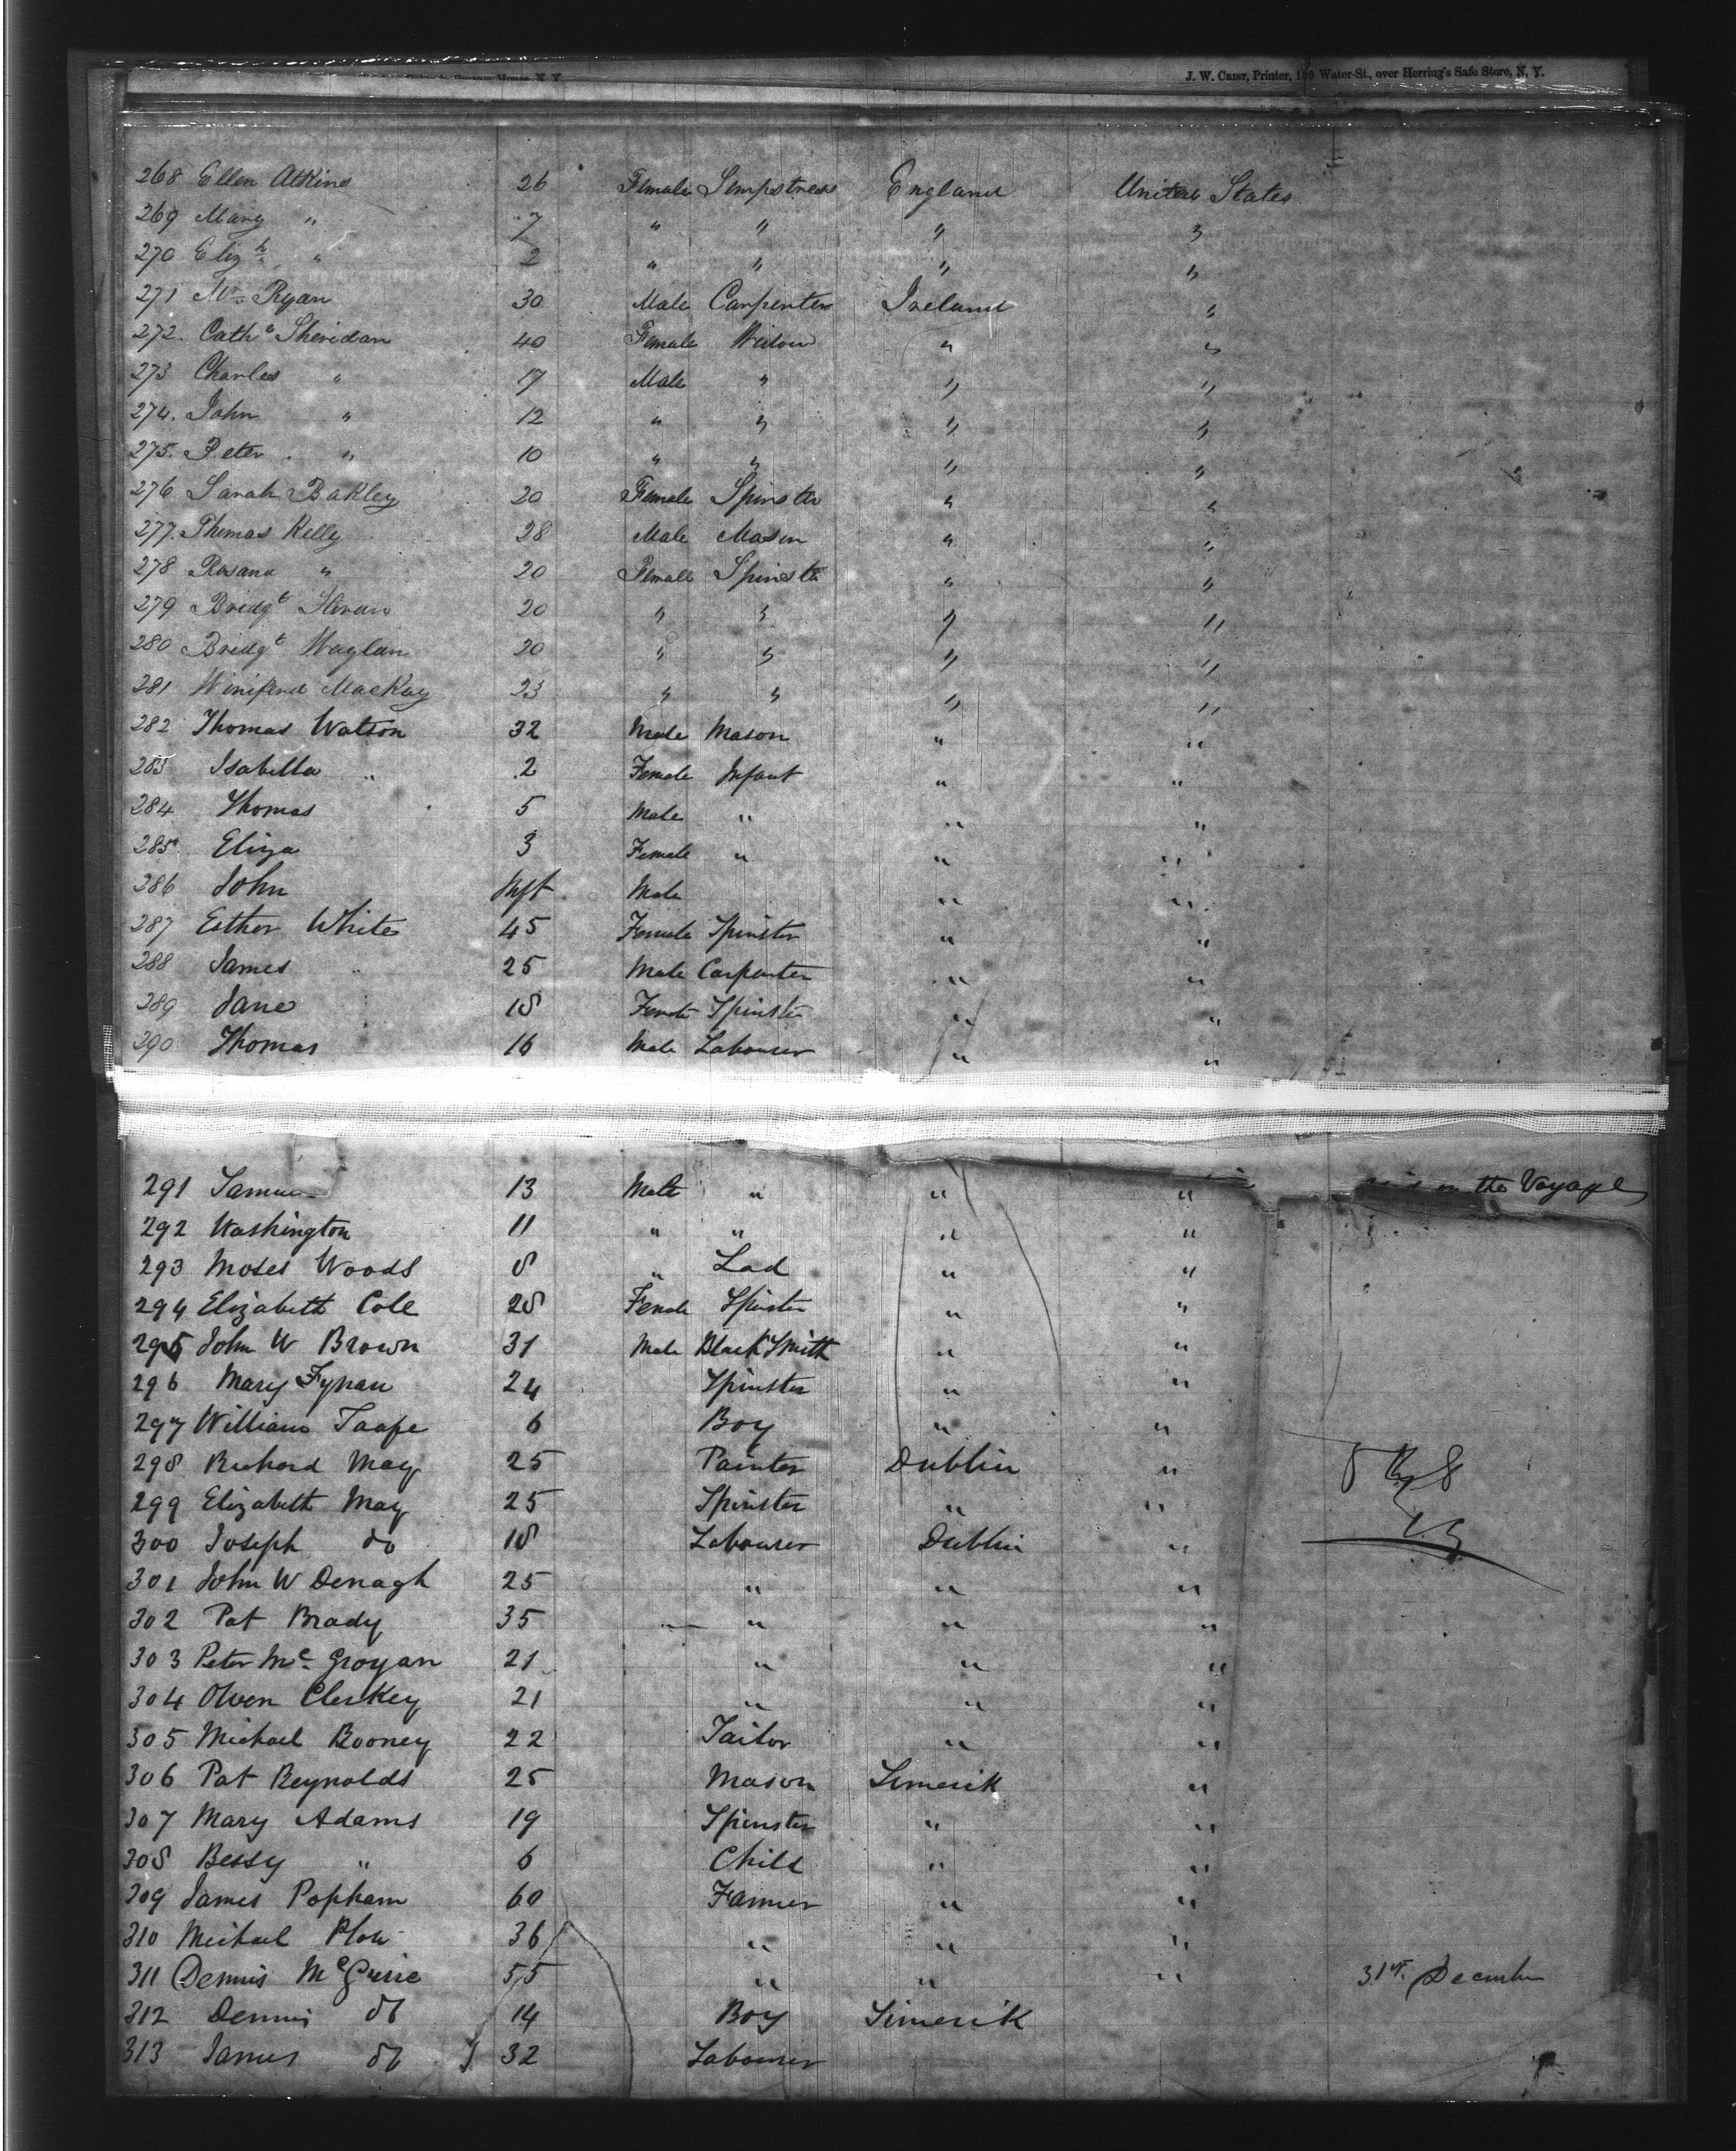 J. W. Carr, Printer, 139 Water-St., over Herring's Safe Store, N. Y.
268 Ellen Atkins 26 Female Sempstress England United States
269 Mary " 7 " " " "
270 Eliz.h " 2 " " " "
271 Ryan 30 Male Carpenter Ireland "
272. Cath.e Sheridan 40 Female Widow " "
273 Charles " 17 Male " " "
274. John " 12 " " " "
275. Peter " 10 " " " "
276 Sarah Bakley 20 Female Spinster " "
277. Thomas Kelly 28 Male Mason " "
278 Rosana " 20 Female Spinster " "
279 Bridgt 20 " " " "
280 Bridgt 20 " " " "
281 Winifred MacKay 23 " " " "
282 Thomas Watson 32 Male Mason " "
283 Isabella " 2 Female Infant " "
284 Thomas 5 Male " " "
285 Eliza 3 Female " " "
286 John Inft Male " "
287 Esther White 45 Female Spinster " "
288 James " 25 Male Carpenter " "
289 Jane 18 Female Spinster " "
290 Thomas 16 Male Labourer " "
291 13 Male " " " on the Voyage
292 Washington 11 " " " "
293 Moses Woods 8 " Lad " "
294 Elizabeth Cole 28 Female Spinster " "
295 John W Brown 31 Male BlackSmith " "
296 Mary Fynan 24 Spinster " "
297 William Taafe 6 Boy " "
298 Richard May 25 Painter Dublin "
299 Elizabeth May 25 Spinster " "
300 Joseph do 18 Labourer Dublin "
301 John W Denagh 25 " " "
302 Pat Brady 35 " " "
303 Peter Mc Groyan 21 " " "
304 Owen Clerkey 21 " " "
305 Michael Rooney 22 Tailor " "
306 Pat Reynolds 25 Mason Limerik "
307 Mary Adams 19 Spinster " "
308 Bessy " 6 Child " "
309 James Popham 60 Farmer " "
310 Michael 36 " " "
311 Dennis McGuire 55 " " " 31st December
312 Dennis do 14 Boy Limerik
313 James do 32 Labourer